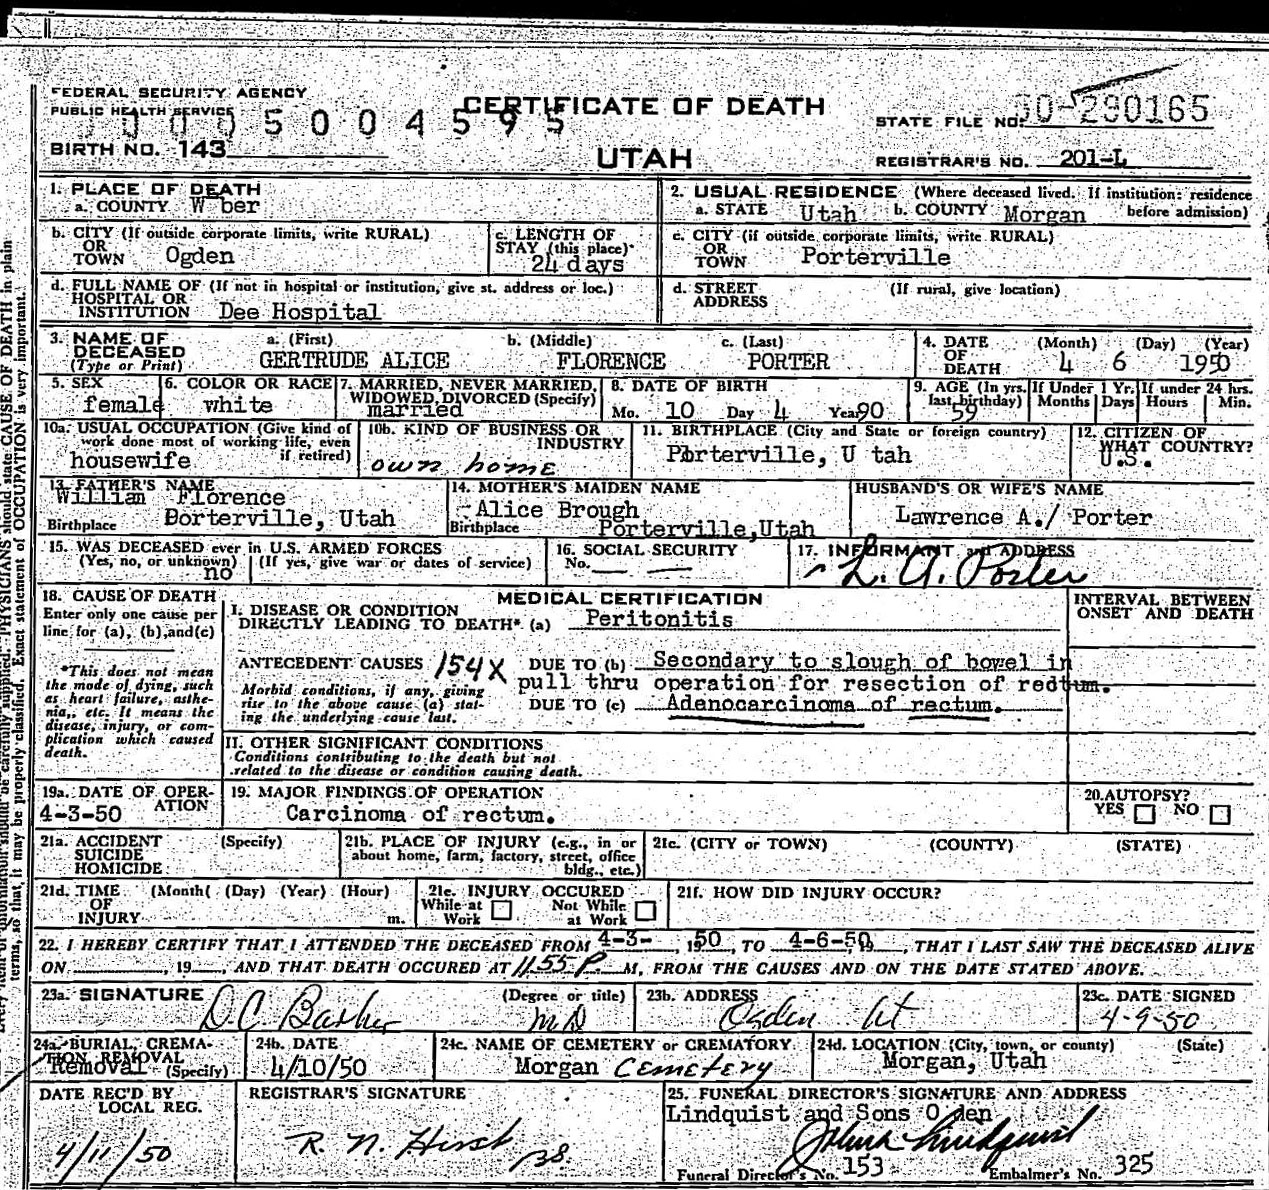 FEDERAL SECURITY AGENCY
PUBLIC HEALTH SERVICE
CERTIFICATE OF DEATH
5004595
STATE FILE NO. 290165
BIRTH NO. 143
UTAH
REGISTRAR'S NO. 201-L
1. PLACE OF DEATH
a. COUNTY W ber
2. USUAL RESIDENCE (Where deceased lived. If institution: residence before admission)
a. STATE Utah b. COUNTY Morgan
b. CITY (If outside corporate limits, write RURAL)
OR
TOWN Ogden
c. LENGTH OF
STAY (this place)
24 days
c. CITY (if outside corporate limits, write RURAL)
OR
TOWN Porterville
d. FULL NAME OF (If not in hospital or institution, give st. address or loc.)
HOSPITAL OR
INSTITUTION Dee Hospital
d. STREET (If rural, give location)
ADDRESS
3. NAME OF
DECEASED
(Type or Print)
a. (First) b. (Middle) c. (Last)
GERTRUDE ALICE FLORENCE PORTER
4. DATE (Month) (Day) (Year)
OF
DEATH 4 6 1950
5. SEX
female
6. COLOR OR RACE
white
7. MARRIED, NEVER MARRIED,
WIDOWED, DIVORCED (Specify)
married
8. DATE OF BIRTH
Mo. 10 Day 4 Year 90
9. AGE (In yrs. last birthday)
59
If Under 1 Yr.
Months Days
If under 24 hrs.
Hours Min.
10a. USUAL OCCUPATION (Give kind of
work done most of working life, even
if retired)
housewife
10b. KIND OF BUSINESS OR
INDUSTRY
own home
11. BIRTHPLACE (City and State or foreign country)
Porterville, U tah
12. CITIZEN OF
WHAT COUNTRY?
U.S.
13. FATHER'S NAME
William Florence
Birthplace Porterville, Utah
14. MOTHER'S MAIDEN NAME
Alice Brough
Birthplace Porterville,Utah
HUSBAND'S OR WIFE'S NAME
Lawrence A./ Porter
15. WAS DECEASED ever in U.S. ARMED FORCES
(Yes, no, or unknown) (If yes, give war or dates of service)
no
16. SOCIAL SECURITY
No.
17. INFORMANT and ADDRESS
L. A. Porter
18. CAUSE OF DEATH
Enter only one cause per
line for (a), (b),and(c)
*This does not mean
the mode of dying, such
as heart failure, asthe-
nia,, etc. It means the
disease, injury, or com-
plication which caused
death.
MEDICAL CERTIFICATION
INTERVAL BETWEEN
ONSET AND DEATH
I. DISEASE OR CONDITION
DIRECTLY LEADING TO DEATH* (a) Peritonitis
ANTECEDENT CAUSES 154X DUE TO (b) Secondary to slough of bowel in
pull thru operation for resection of rectum.
Morbid conditions, if any, giving
rise to the above cause (a) stat-
ing the underlying cause last.
DUE TO (c) Adenocarcinoma of rectum.
II. OTHER SIGNIFICANT CONDITIONS
Conditions contributing to the death but not
related to the disease or condition causing death.
19a. DATE OF OPER-
ATION
4-3-50
19. MAJOR FINDINGS OF OPERATION
Carcinoma of rectum.
20. AUTOPSY?
YES NO
21a. ACCIDENT (Specify)
SUICIDE
HOMICIDE
21b. PLACE OF INJURY (e.g., in or
about home, farm, factory, street, office
bldg., etc.)
21c. (CITY or TOWN) (COUNTY) (STATE)
21d. TIME (Month( (Day) (Year) (Hour)
OF
INJURY m.
21e. INJURY OCCURED
While at Work Not While at Work
21f. HOW DID INJURY OCCUR?
22. I HEREBY CERTIFY THAT I ATTENDED THE DECEASED FROM 4-3-, 1950, TO 4-6-50, THAT I LAST SAW THE DECEASED ALIVE
ON , 19 , AND THAT DEATH OCCURED AT 11 55 P. M, FROM THE CAUSES AND ON THE DATE STATED ABOVE.
23a. SIGNATURE (Degree or title)
D.C. Barker MD
23b. ADDRESS
Ogden Ut
23c. DATE SIGNED
4-9-50
24a. BURIAL, CREMA-
TION, REMOVAL
Removal (Specify)
24b. DATE
4/10/50
24c. NAME OF CEMETERY or CREMATORY
Morgan Cemetery
24d. LOCATION (City, town, or county) (State)
Morgan, Utah
DATE REC'D BY
LOCAL REG.
4/11/50
REGISTRAR'S SIGNATURE
R. N. Hirst
25. FUNERAL DIRECTOR'S SIGNATURE AND ADDRESS
Lindquist and Sons O den
John Lindquist
Funeral Director's No. 153 Embalmer's No. 325